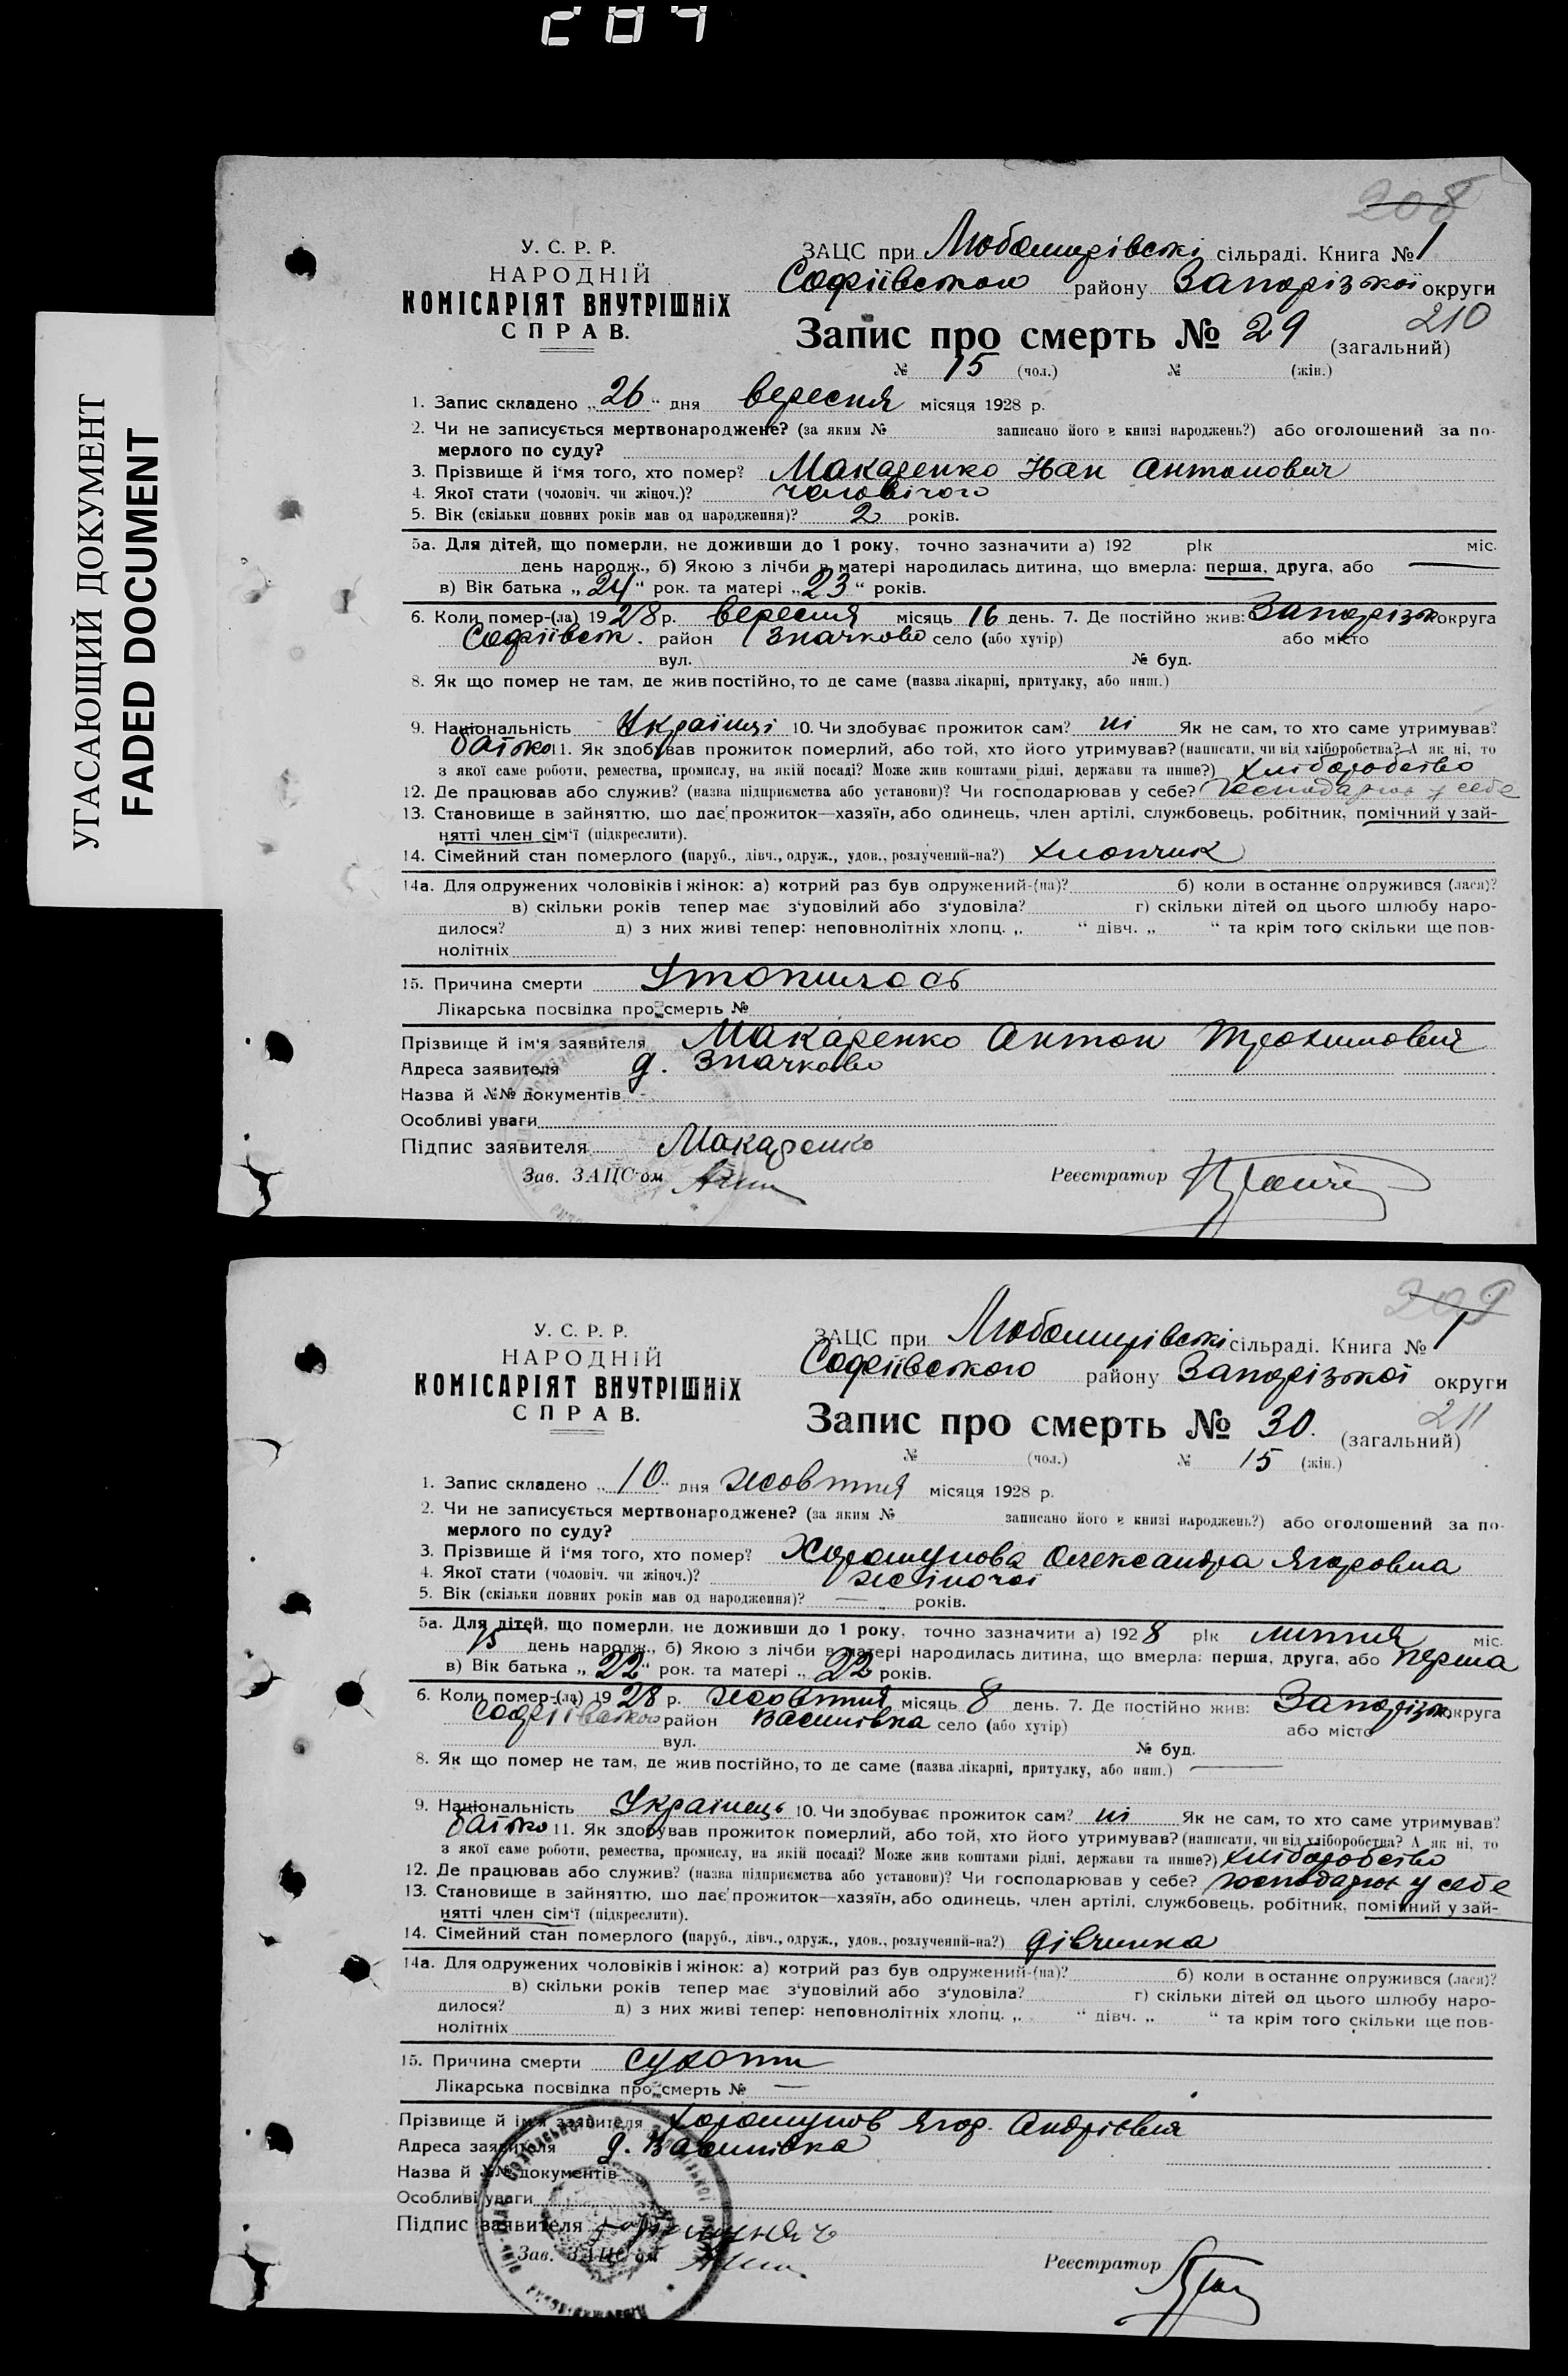 204
УГАСАЮЩИЙ ДОКУМЕНТ
FADED DOCUMENT
208
У. С. Р. Р.
НАРОДНІЙ
КОМІСАРІЯТ ВНУТРІШНІХ
СПРАВ.
ЗАЦС при Любомирівські сільраді. Книга № 1
Софіївського району Запорізької округи
210
Запис про смерть № 29 (загальний)
№ 15 (чол.) № (жін.)
1. Запис складено „26“ дня вересня місяця 1928 р.
2. Чи не записується мертвонароджене? (за яким № записано його в книзі народжень?) або оголошений за по-
мерлого по суду?
3. Прізвище й і'мя того, хто помер? Макаренко Іван Антонович
4. Якої стати (чоловіч. чи жіноч.)? чоловічого
5. Вік (скільки повних років мав од народження)? 2 років.
5а. Для дітей, що померли, не доживши до 1 року, точно зазначити а) 192 рік міс.
день народж., б) Якою з лічби в матері народилась дитина, що вмерла: перша, друга, або —
в) Вік батька „24“ рок. та матері „23“ років.
6. Коли помер-(ла) 1928 р. вересня місяць 16 день. 7. Де постійно жив: Запорізьк округа
Софіївськ. район Значково село (або хутір) або місто
вул. № буд.
8. Як що помер не там, де жив постійно, то де саме (назва лікарні, притулку, або инш.)
9. Національність Українці 10. Чи здобуває прожиток сам? ні Як не сам, то хто саме утримував?
батько 11. Як здобував прожиток померлий, або той, хто його утримував? (написати, чи від хліборобства? А як ні, то
з якої саме роботи, ремества, промислу, на якій посаді? Може жив коштами рідні, держави та инше?) хліборобство
12. Де працював або служив? (назва підприємства або установи)? Чи господарював у себе? господарюв у себе
13. Становище в зайняттю, що дає прожиток—хазяїн, або одинець, член артілі, службовець, робітник, помічний у зай-
нятті член сім'ї (підкреслити).
14. Сімейний стан померлого (паруб., дівч., одруж., удов., розлучений-на?) хлопчик
14а. Для одружених чоловіків і жінок: а) котрий раз був одружений-(на)? б) коли в останнє одружився (лася)?
в) скільки років тепер має з'удовілий або з'удовіла? г) скільки дітей од цього шлюбу наро-
дилося? д) з них живі тепер: неповнолітніх хлопц. „ “ дівч. „ “ та крім того скільки ще пов-
нолітніх
15. Причина смерти Утопилось
Лікарська посвідка про смерть №
Прізвище й ім'я заявителя Макаренко Антон Трохимович
Адреса заявителя д. Значково
Назва й №№ документів
Особливі уваги
Підпис заявителя Макаренко
Зав. ЗАЦС'ом Реєстратор
209
У. С. Р. Р.
НАРОДНІЙ
КОМІСАРІЯТ ВНУТРІШНІХ
СПРАВ.
ЗАЦС при Любомирівські сільраді. Книга № 1
Софіївського району Запорізької округи
211
Запис про смерть № 30. (загальний)
№ (чол.) № 15 (жін.)
1. Запис складено „10“ дня жовтня місяця 1928 р.
2. Чи не записується мертвонароджене? (за яким № записано його в книзі народжень?) або оголошений за по-
мерлого по суду?
3. Прізвище й і'мя того, хто помер? Хорошунова Олександра Ягоровна
4. Якої стати (чоловіч. чи жіноч.)? жіночої
5. Вік (скільки повних років мав од народження)? — „ років.
5а. Для дітей, що померли, не доживши до 1 року, точно зазначити а) 1928 рік липня міс.
15 день народж., б) Якою з лічби в матері народилась дитина, що вмерла: перша, друга, або перша
в) Вік батька „22“ рок. та матері „22 років.
6. Коли помер-(ла) 1928 р. жовтня місяць 8 день. 7. Де постійно жив: Запорізьк. округа
Софіївського район Василівка село (або хутір) або місто
вул. № буд.
8. Як що помер не там, де жив постійно, то де саме (назва лікарні, притулку, або инш.) —
9. Національність Українець 10. Чи здобуває прожиток сам? ні Як не сам, то хто саме утримував?
батько 11. Як здобував прожиток померлий, або той, хто його утримував? (написати, чи від хліборобства? А як ні, то
з якої саме роботи, ремества, промислу, на якій посаді? Може жив коштами рідні, держави та инше?) хліборобство
12. Де працював або служив? (назва підприємства або установи)? Чи господарював у себе? господарюв у себе
13. Становище в зайняттю, що дає прожиток—хазяїн, або одинець, член артілі, службовець, робітник, помічний у зай-
нятті член сім'ї (підкреслити).
14. Сімейний стан померлого (паруб., дівч., одруж., удов., розлучений-на?) дівчинка
14а. Для одружених чоловіків і жінок: а) котрий раз був одружений-(на)? б) коли в останнє одружився (лася)?
в) скільки років тепер має з'удовілий або з'удовіла? г) скільки дітей од цього шлюбу наро-
дилося? д) з них живі тепер: неповнолітніх хлопц. „ “ дівч. „ “ та крім того скільки ще пов-
нолітніх
15. Причина смерти сухоти
Лікарська посвідка про смерть № —
Прізвище й ім'я заявителя Хорошунов Ягор. Андрієвич
Адреса заявителя д. Василівка
Назва й №№ документів
Особливі уваги
Підпис заявителя
Зав. ЗАЦС'ом Реєстратор